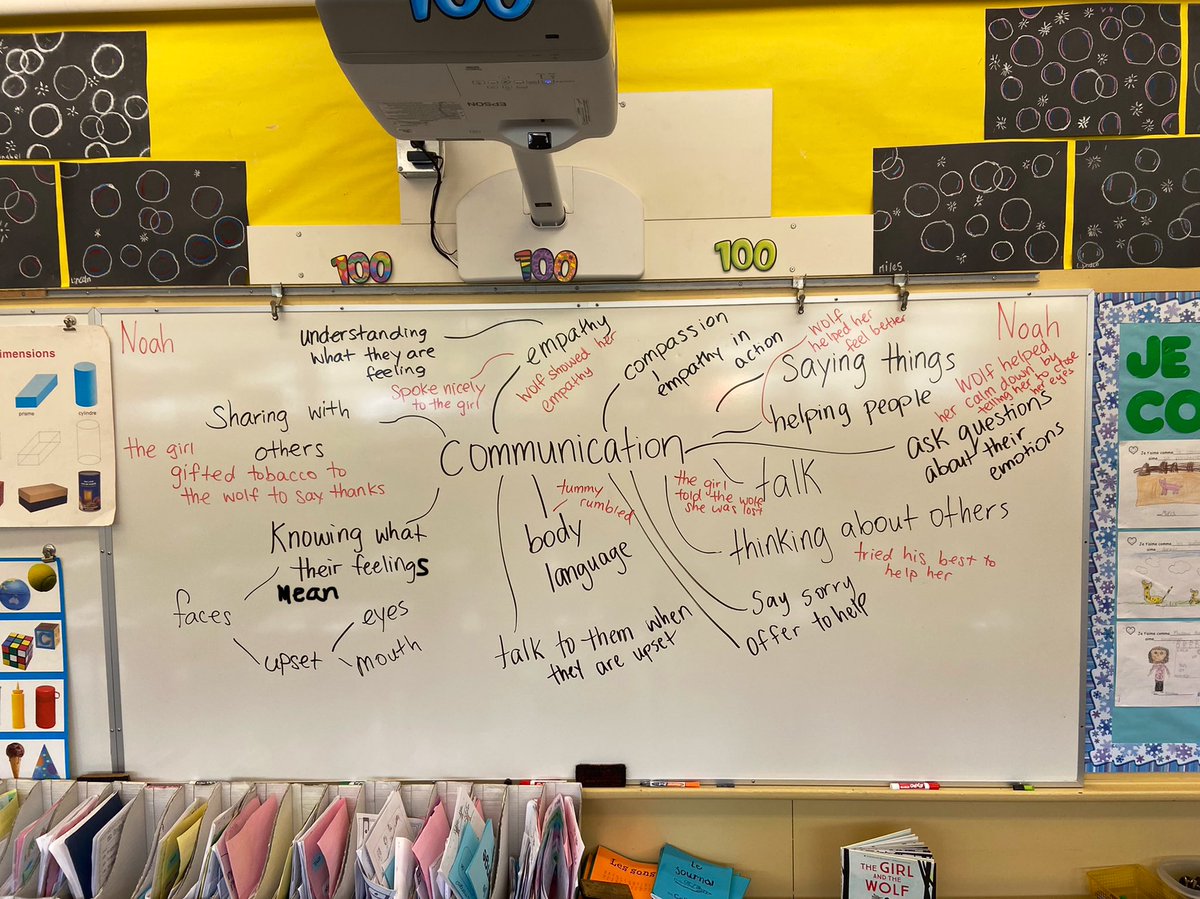 100
EPSON
100
100
100
Lincoln
miles
Lynden
Noah
understanding
what they are
feeling
empathy
wolf showed her
empathy
Spoke nicely
to the girl
compassion
empathy in
action
wolf
helped her
feel better
Noah
Saying things
helping people
wolf helped
her calm down by
telling her to close
her eyes
Sharing with
others
the girl
gifted tobacco to
the wolf to say thanks
Communication
ask questions
about their
emotions
talk
the girl
told the wolf
she was lost
tummy
rumbled
body
language
Knowing what
their feelings
Mean
thinking about others
tried his best to
help her
faces
upset
eyes
mouth
talk to them when
they are upset
Say sorry
offer to help
imensions
prisme
cylindre
JE
CO
Je t'aime comme
Je t'aime comme
Je t'aime comme
Les sons
Le
Journal
THE GIRL
AND THE
WOLF